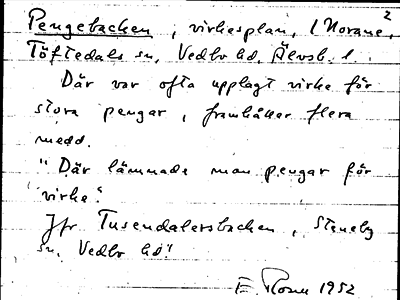 2
Pengebacken, virkesplan, i Norane,
Töftedals sn, Vedbo hd, Älvsb. l.
Där var ofta upplagt virke för
stora pengar, framhåller flera
medd.
"Där lämnade man pengar för
virke".
Jfr Tusendalersbacken, Steneby
sn, Vedbo hd"
E Rosen 1952